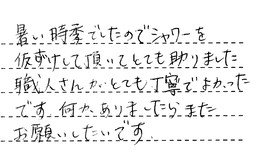 暑い時季でしたのでシャワーを
仮ずけして頂いてとても助りました
職人さんがとても丁寧でよかった
です 何かありましたらまた
お願いしたいです